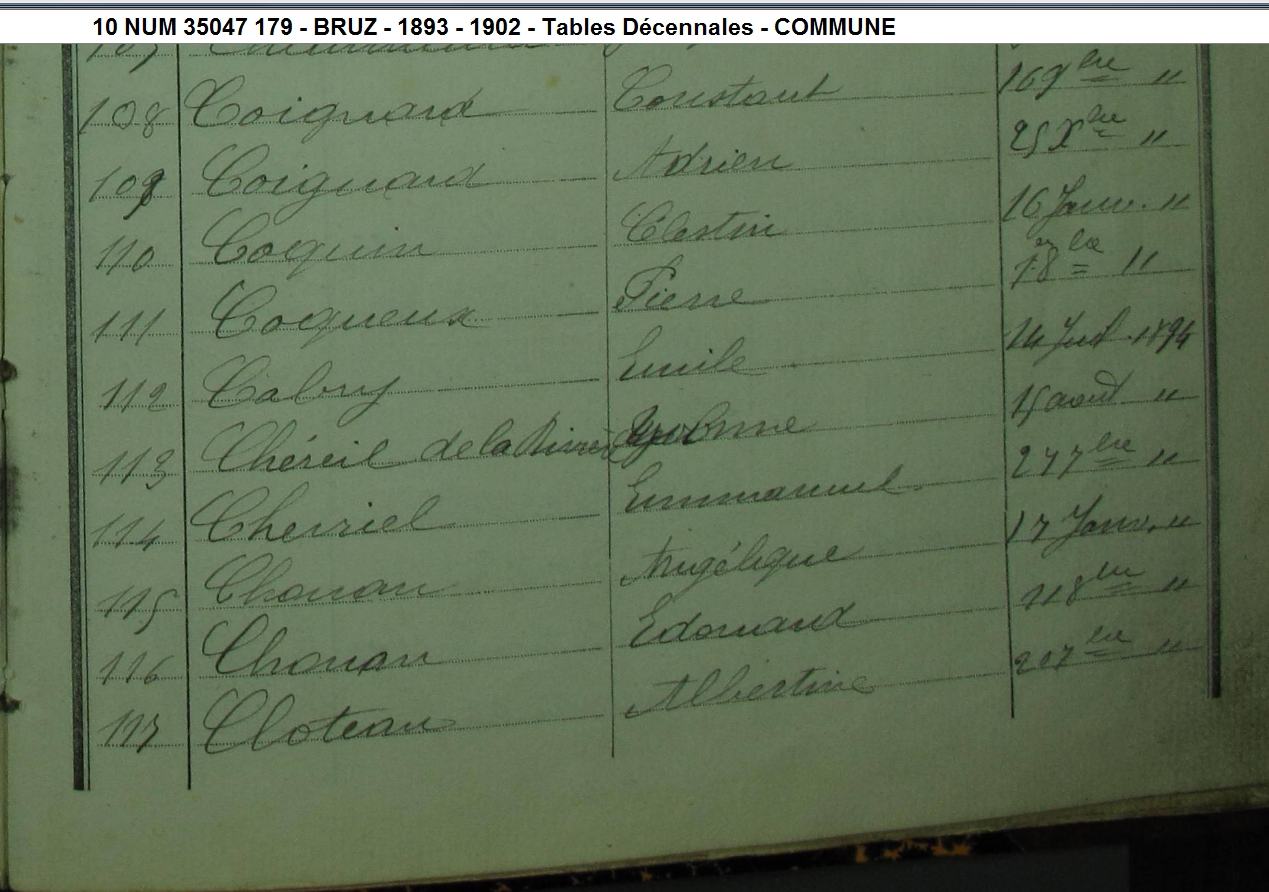 10 NUM 35047 179 - BRUZ - 1893 - 1902 - Tables Décennales - COMMUNE
107
108 Coignard Constant 16 9bre "
109 Coignard Adrien 25 Xbre "
110 Coquin Célestin 16 Janv. "
111 Coqueux Pierre 1er 8bre "
112 Cabry Emile 14 Juil. 1894
113 Chéreil de la Rivière Yvonne 15 aout "
114 Cherriel Emmanuel 24 7bre "
115 Chouan Angélique 17 Janv. "
116 Chouan Edouard 11 8bre "
117 Cloteau Albertine 20 7bre "